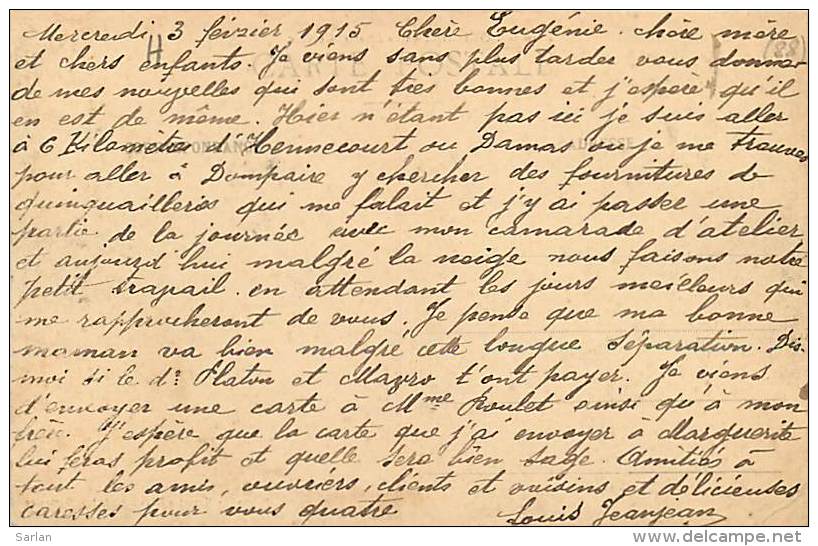 Mercredi 3 février 1915 Chère Eugénie. chère mère
et chers enfants. Je viens sans plus tarder vous donner
de mes nouvelles qui sont très bonnes et j'espère qu'il
en est de même. Hier n'étant pas ici je suis aller
à 6 Kilomètres d'Hennecourt ou Damas ou je me trouves
pour aller à Dompaire y chercher des fournitures de
quinquailleries qui me falait et j'y ai passer une
partie de la journée avec mon camarade d'atelier
et aujourd'hui malgré la neige nous faisons notre
petit travail. en attendant les jours meilleurs qui
me rapprocheront de vous. Je pense que ma bonne
maman va bien malgré cette longue séparation. Dis
moi si le dr Platon et Mauro t'ont payer. Je viens
d'envoyer une carte à Mme Roulet ainsi qu'à mon
frère. J'espère que la carte que j'ai envoyer à Marguerite
lui feras profit et quelle sera bien sage. Amitiés à
tout les amis, ouvriers, clients et voisins et délicieuses
caresses pour vous quatre Louis Jeanjean
(88)
CARTE POSTALE
Delcampe.net